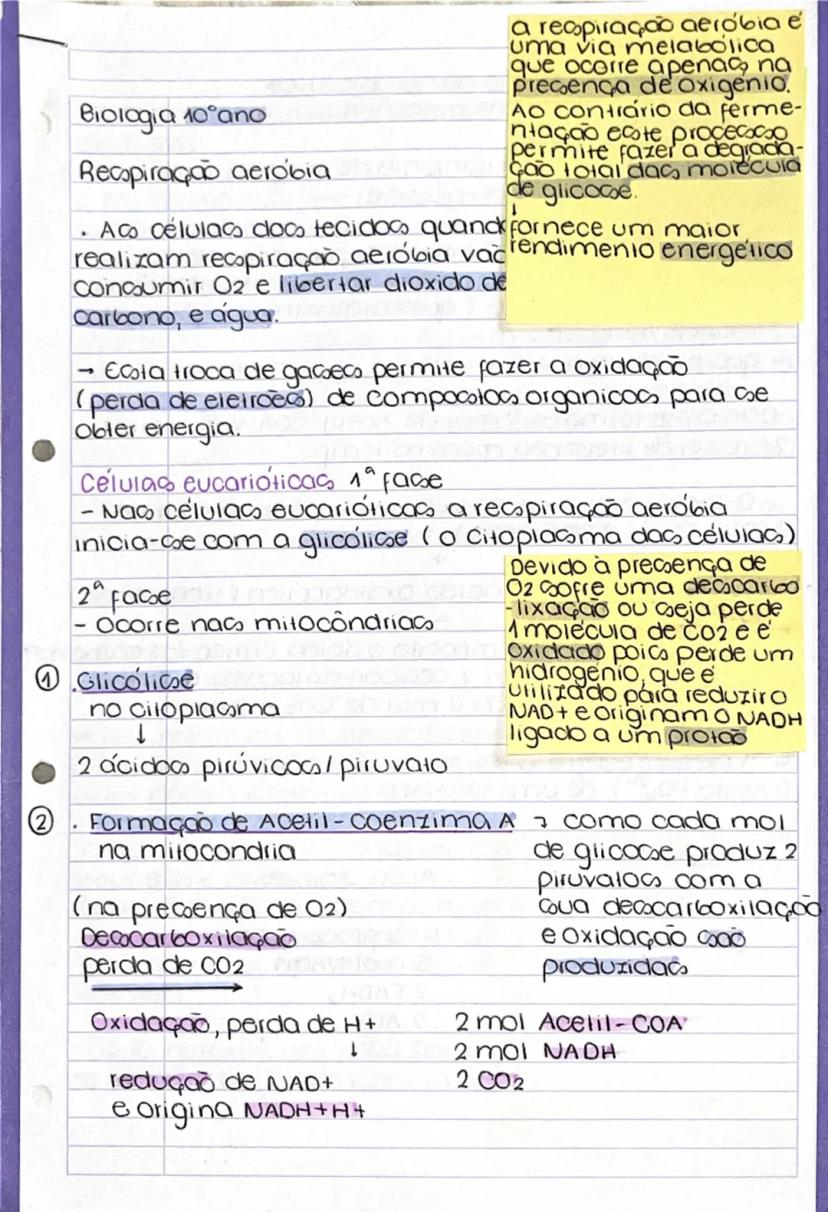 Biologia 10º ano
Respiração aeróbia
. As células dos tecidos quand
realizam respiração aeróbia vão
consumir O2 e libertar dioxido de
carbono, e água.
→ Esta troca de gases permite fazer a oxidação
(perda de eletrões) de compostos organicos para se
obter energia.
a respiração aeróbia é
uma via metabólica
que ocorre apenas na
presença de oxigénio.
Ao contrário da ferme-
ntação este processo
permite fazer a degrada-
ção total das molécula
de glicose.
↓
fornece um maior
rendimento energético
Células eucarióticas 1ª fase
- Nas células eucarióticas a respiração aeróbia
inicia-se com a glicólise (o citoplasma das células)
2ª fase
- Ocorre nas mitocôndrias
① . Glicólise
no citoplasma
↓
2 ácidos pirúvicos/piruvato
Devido à presença de
O2 sofre uma descarbo
-lixação ou seja perde
1 molécula de CO2 e é
oxidado pois perde um
hidrogénio, que é
utilizado para reduzir o
NAD+ e originam o NADH
ligado a um protão
② . Formação de Acetil-coenzima A
na mitocondria
(na presença de O2)
Descarboxilação
perda de CO2
Oxidação, perda de H+
↓
redução de NAD+
e origina NADH+H+
→ como cada mol
de glicose produz 2
piruvatos com a
sua descarboxilação
e oxidação são
produzidas
2 mol Acetil-COA
2 mol NADH
2 CO2